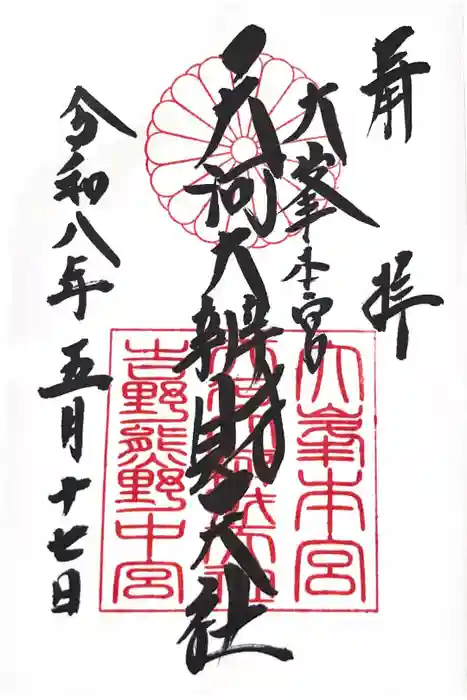 奉拝
大峯本宮
天河大辨財天社
令和八年五月十七日
大峯本宮
吉野熊野中宮